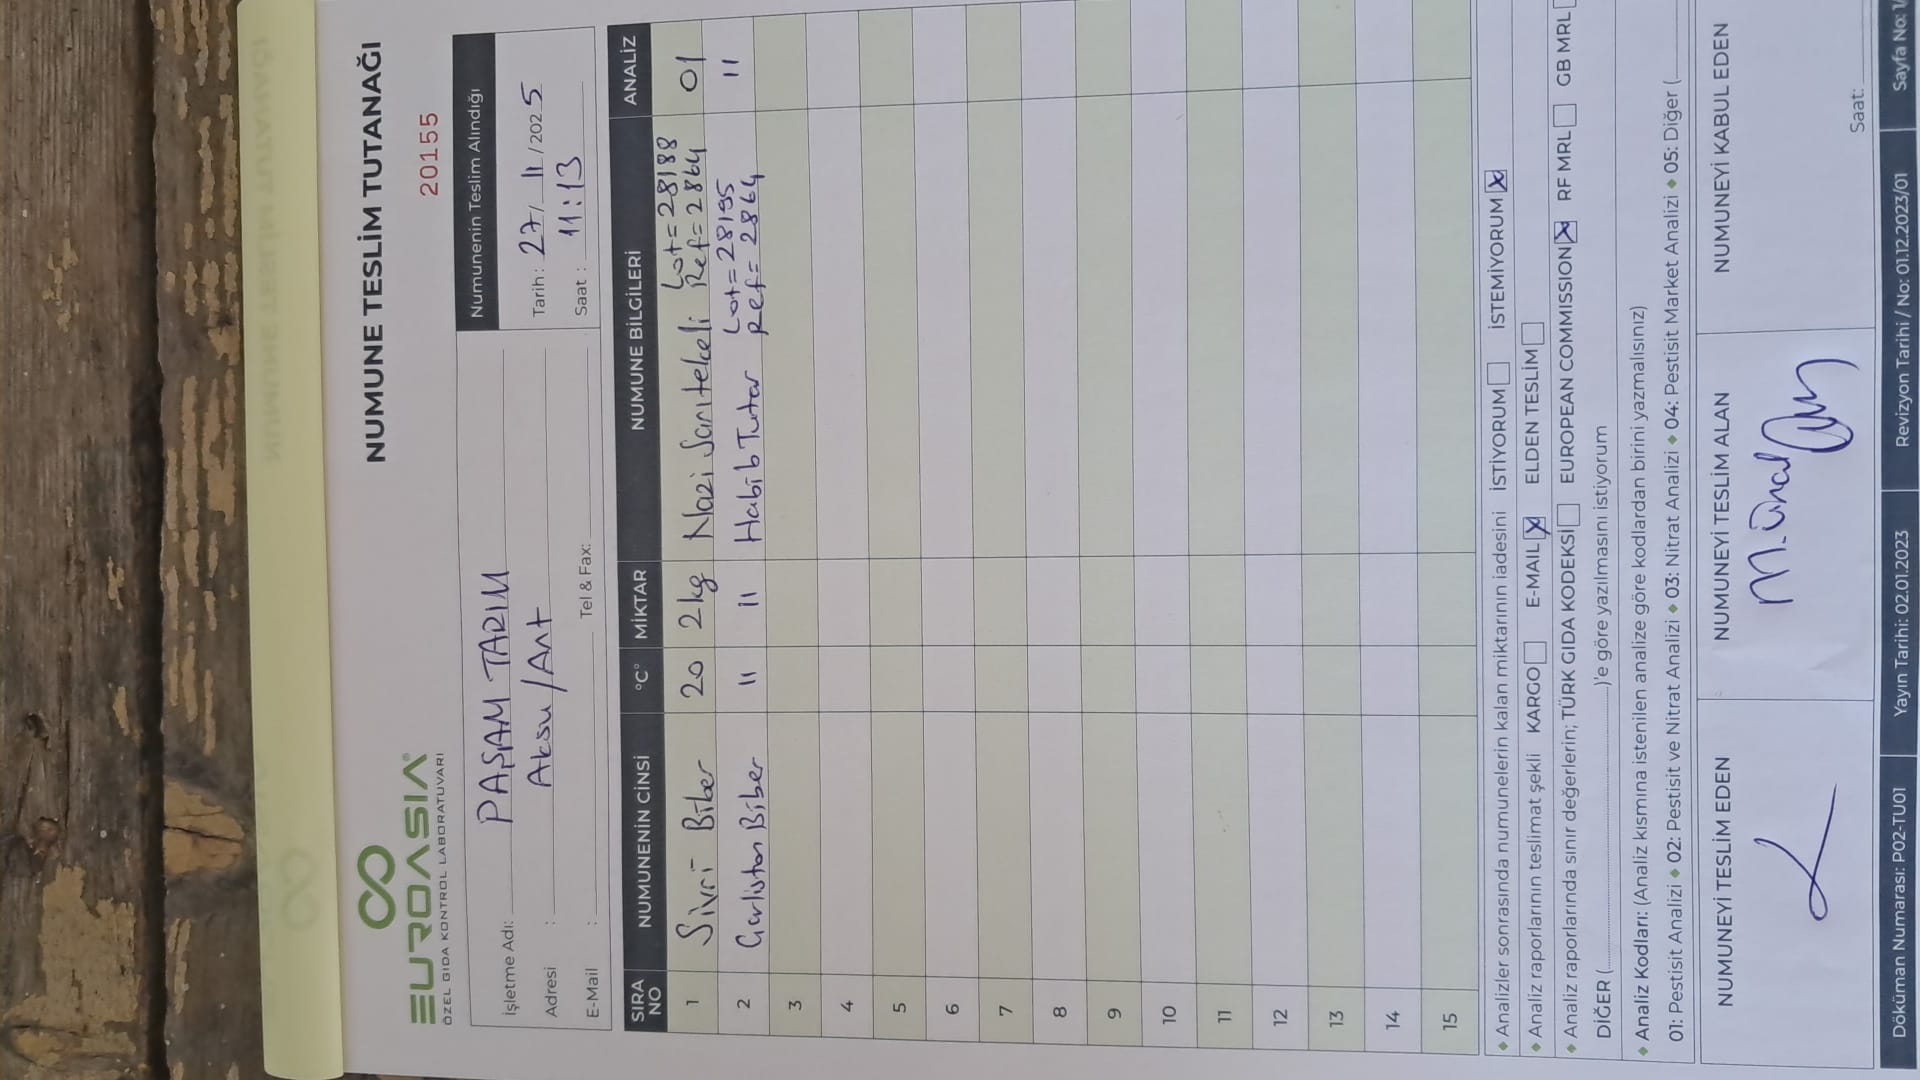 EUROASIA
ÖZEL GIDA KONTROL LABORATUVARI
NUMUNE TESLİM TUTANAĞI
20155
İşletme Adı: PAŞAM TARIM
Adresi : Aksu/Ant
E-Mail : Tel & Fax:
Numunenin Teslim Alındığı
Tarih: 27/11/2025
Saat: 11:13
SIRA NO NUMUNENİN CİNSİ °C° MİKTAR NUMUNE BİLGİLERİ ANALİZ
1 Sivri Biber 20 2kg Nazi Sarıtekeli Lot=28188 Ref=2864 01
2 Çarliston Biber " " Habib Tutar Lot=28195 Ref=2864 "
3
4
5
6
7
8
9
10
11
12
13
14
15
Analizler sonrasında numunelerin kalan miktarının iadesini İSTİYORUM İSTEMİYORUM X
Analiz raporlarının teslimat şekli KARGO E-MAIL X ELDEN TESLİM
Analiz raporlarında sınır değerlerin; TÜRK GIDA KODEKSİ EUROPEAN COMMISSION X RF MRL GB MRL
DİĞER (..........)'e göre yazılmasını istiyorum
Analiz Kodları: (Analiz kısmına istenilen analize göre kodlardan birini yazmalısınız)
01: Pestisit Analizi ♦ 02: Pestisit ve Nitrat Analizi ♦ 03: Nitrat Analizi ♦ 04: Pestisit Market Analizi ♦ 05: Diğer (..........
NUMUNEYİ TESLİM EDEN NUMUNEYİ TESLİM ALAN NUMUNEYİ KABUL EDEN
M. Ünal
Saat:
Döküman Numarası: P02-TU01 Yayın Tarihi: 02.01.2023 Revizyon Tarihi / No: 01.12.2023/01 Sayfa No: 1/